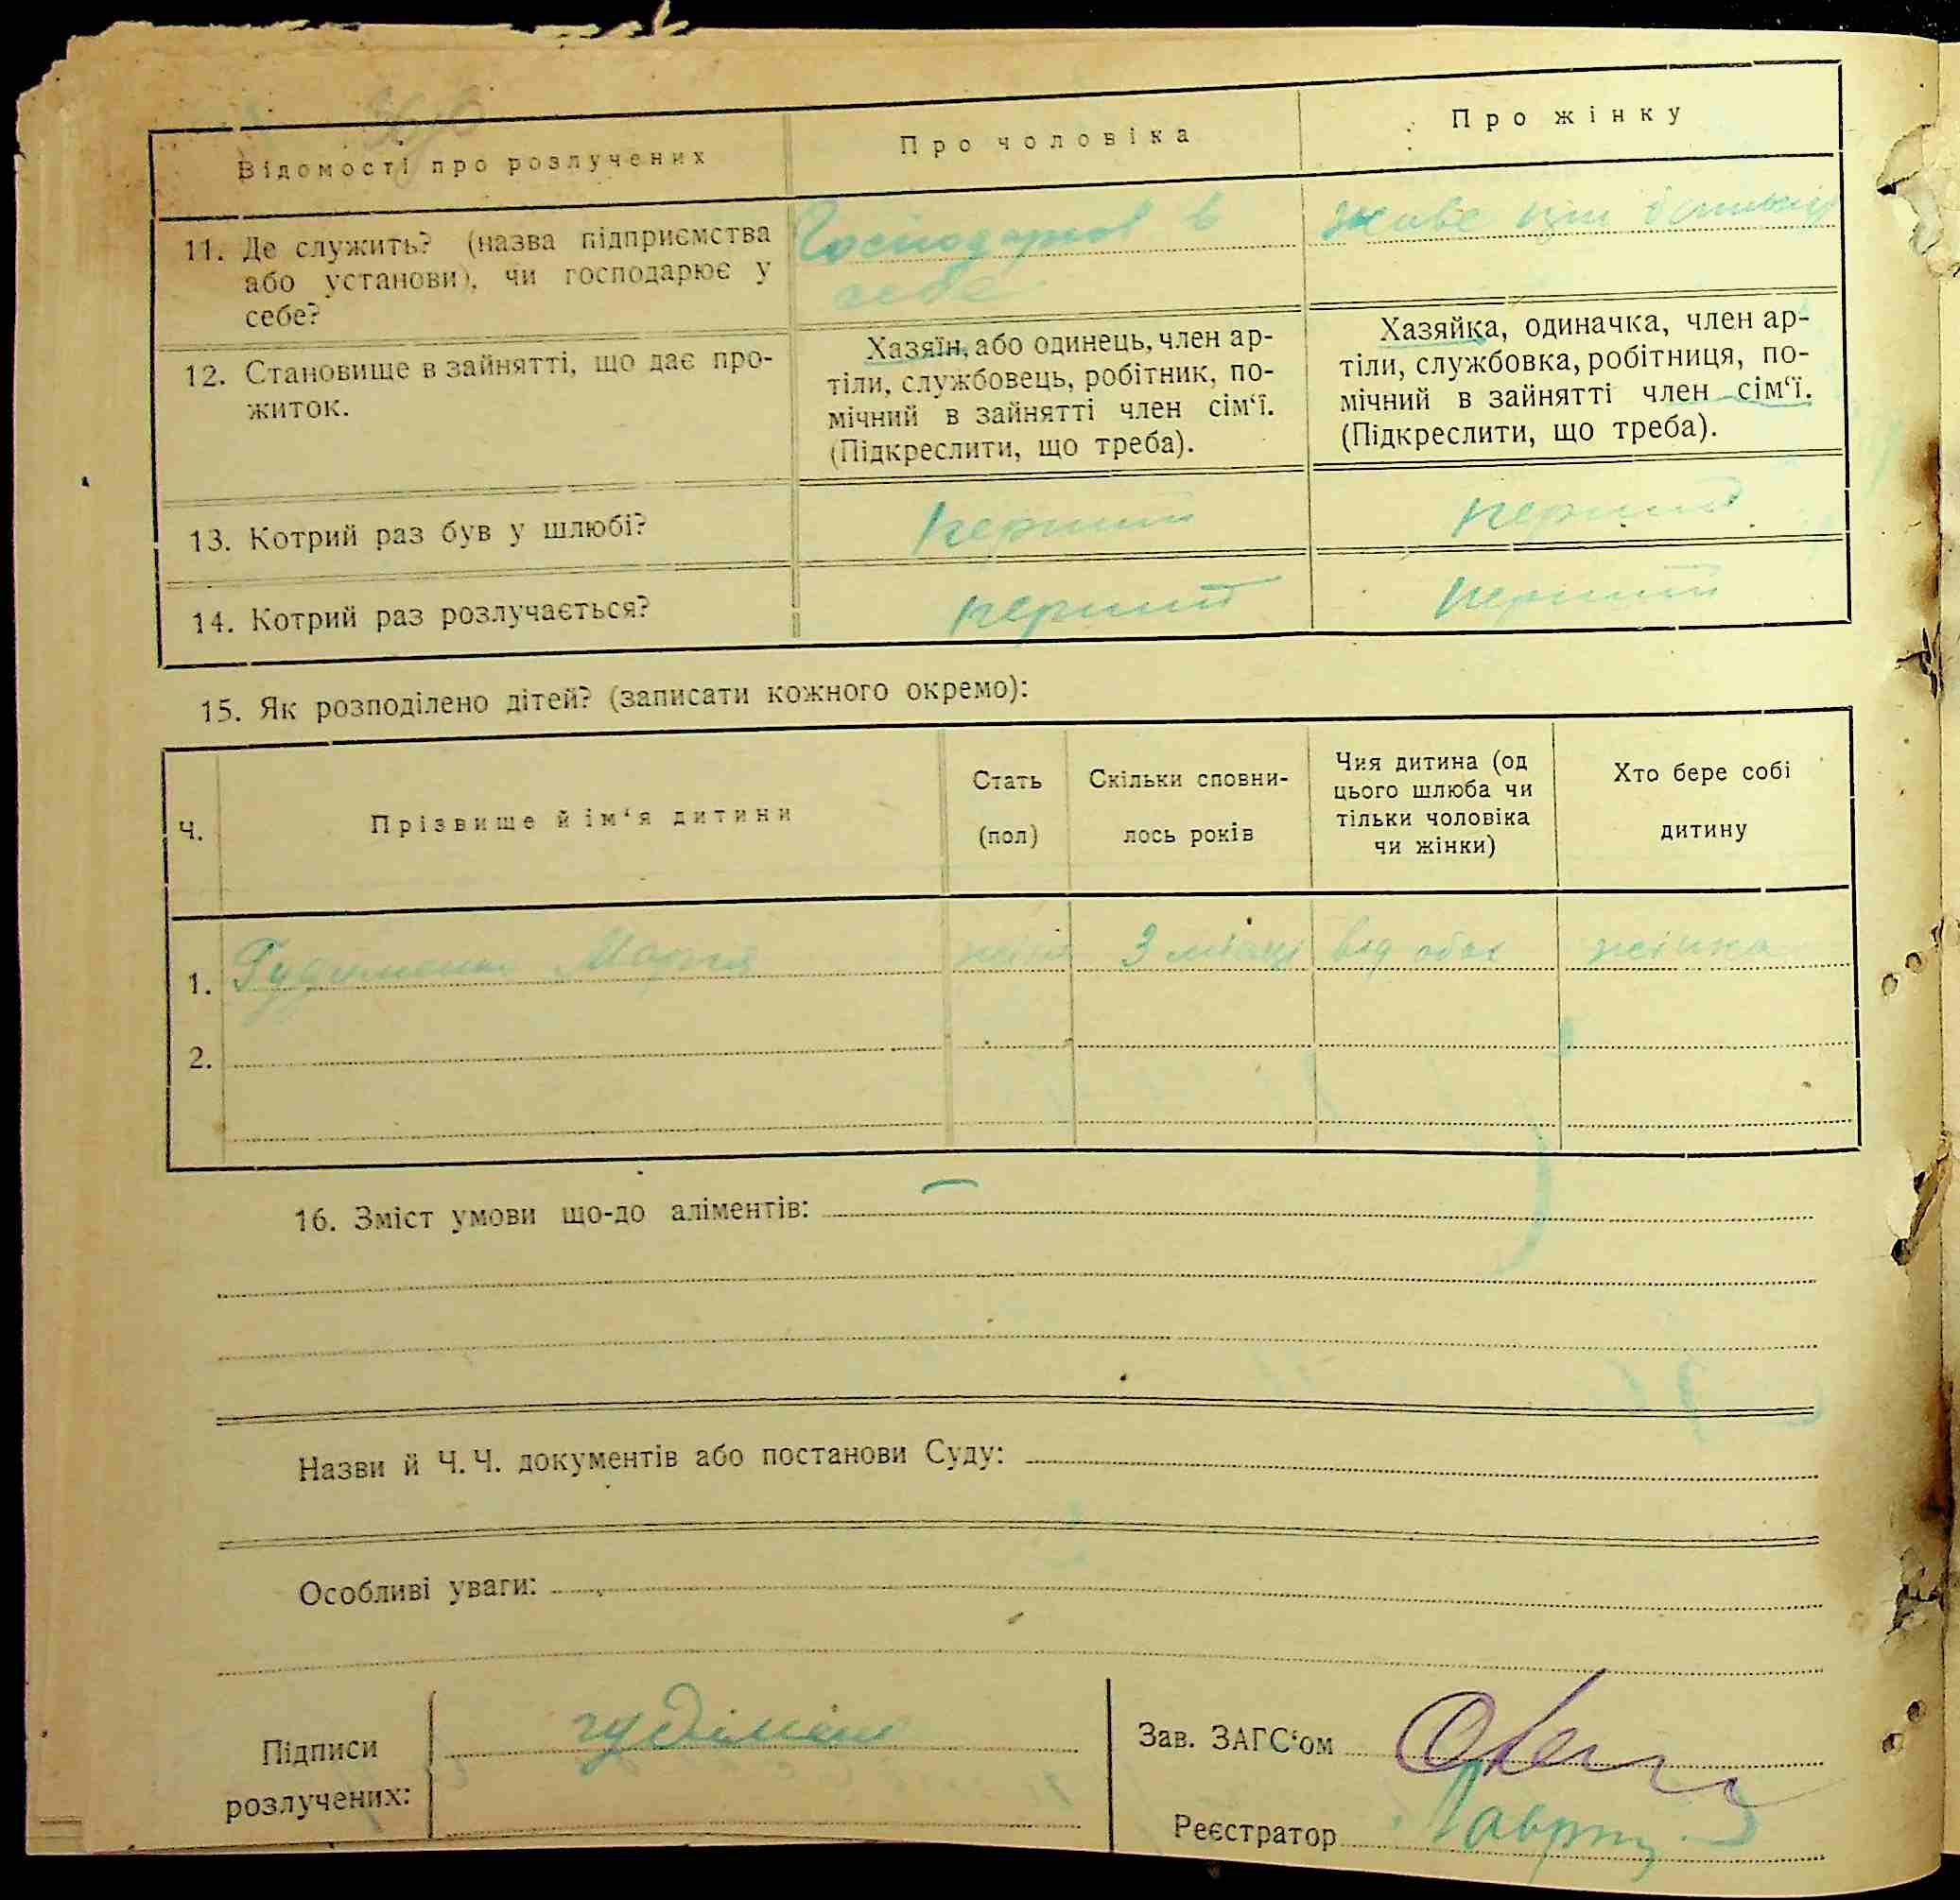 Відомості про розлучених
Про чоловіка
Про жінку
11. Де служить? (назва підприємства
або установи), чи господарює у
себе?
Господарює в
себе
живе при батьків
12. Становище в зайнятті, що дає про-
житок.
Хазяїн, або одинець, член ар-
тіли, службовець, робітник, по-
мічний в зайнятті член сім‘ї.
(Підкреслити, що треба).
Хазяйка, одиначка, член ар-
тіли, службовка, робітниця, по-
мічний в зайнятті член сім‘ї.
(Підкреслити, що треба).
13. Котрий раз був у шлюбі?
перший
перший
14. Котрий раз розлучається?
перший
перший
15. Як розподілено дітей? (записати кожного окремо):
Ч.
Прізвище й ім‘я дитини
Стать
(пол)
Скільки сповни-
лось років
Чия дитина (од
цього шлюба чи
тільки чоловіка
чи жінки)
Хто бере собі
дитину
1. Гудименко Марія жіноч 3 місяці від обох жінка
2.
16. Зміст умови що-до аліментів: —
Назви й Ч. Ч. документів або постанови Суду:
Особливі уваги:
Підписи
розлучених:
Зав. ЗАГС‘ом
Реєстратор